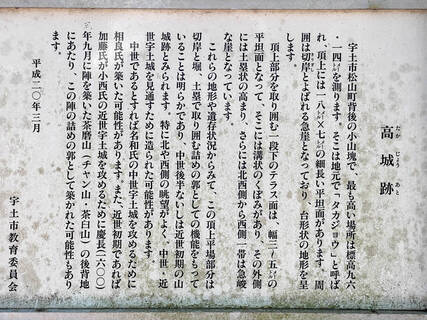 高城跡
たかじょうあと
宇土市松山町背後の小山塊で、最も高い場所は標高九六
・一四㍍を測ります。そこは地元で「タカガジョウ」と呼ば
れ、頂上には一八㍍×七㍍の細長い平坦面があります。周
囲は切岸とよばれる急崖となっており、台形状の地形を呈
します。
頂上部分を取り囲む一段下のテラス面は、幅三～五㍍の
平坦面となって、そこには溝状のくぼみがあり、その外側
には土塁状の高まり、さらには北西側から西側一帯は急峻
な崖となっています。
これらの地形や遺存状況からみて、この頂上平場部分は
切岸と堀、土塁で取り囲む詰めの郭としての機能をもって
いることは明らかであり、中世後半ないしは近世初期の山
城跡とみられます。特に北や西側の眺望がよく、中世、近
世宇土城を見通すために造られた可能性があります。
中世であるとすれば名和氏の中世宇土城を攻めるために
相良氏が築いた可能性があります。また、近世初期であれば
加藤氏が小西氏の近世宇土城を攻めるために慶長五(一六〇〇)
年九月に陣を築いた茶磨山(チャン山・茶臼山)の後背地
にあたり、この陣の詰めの郭として築かれた可能性もあり
ます。
平成二〇年三月
宇土市教育委員会